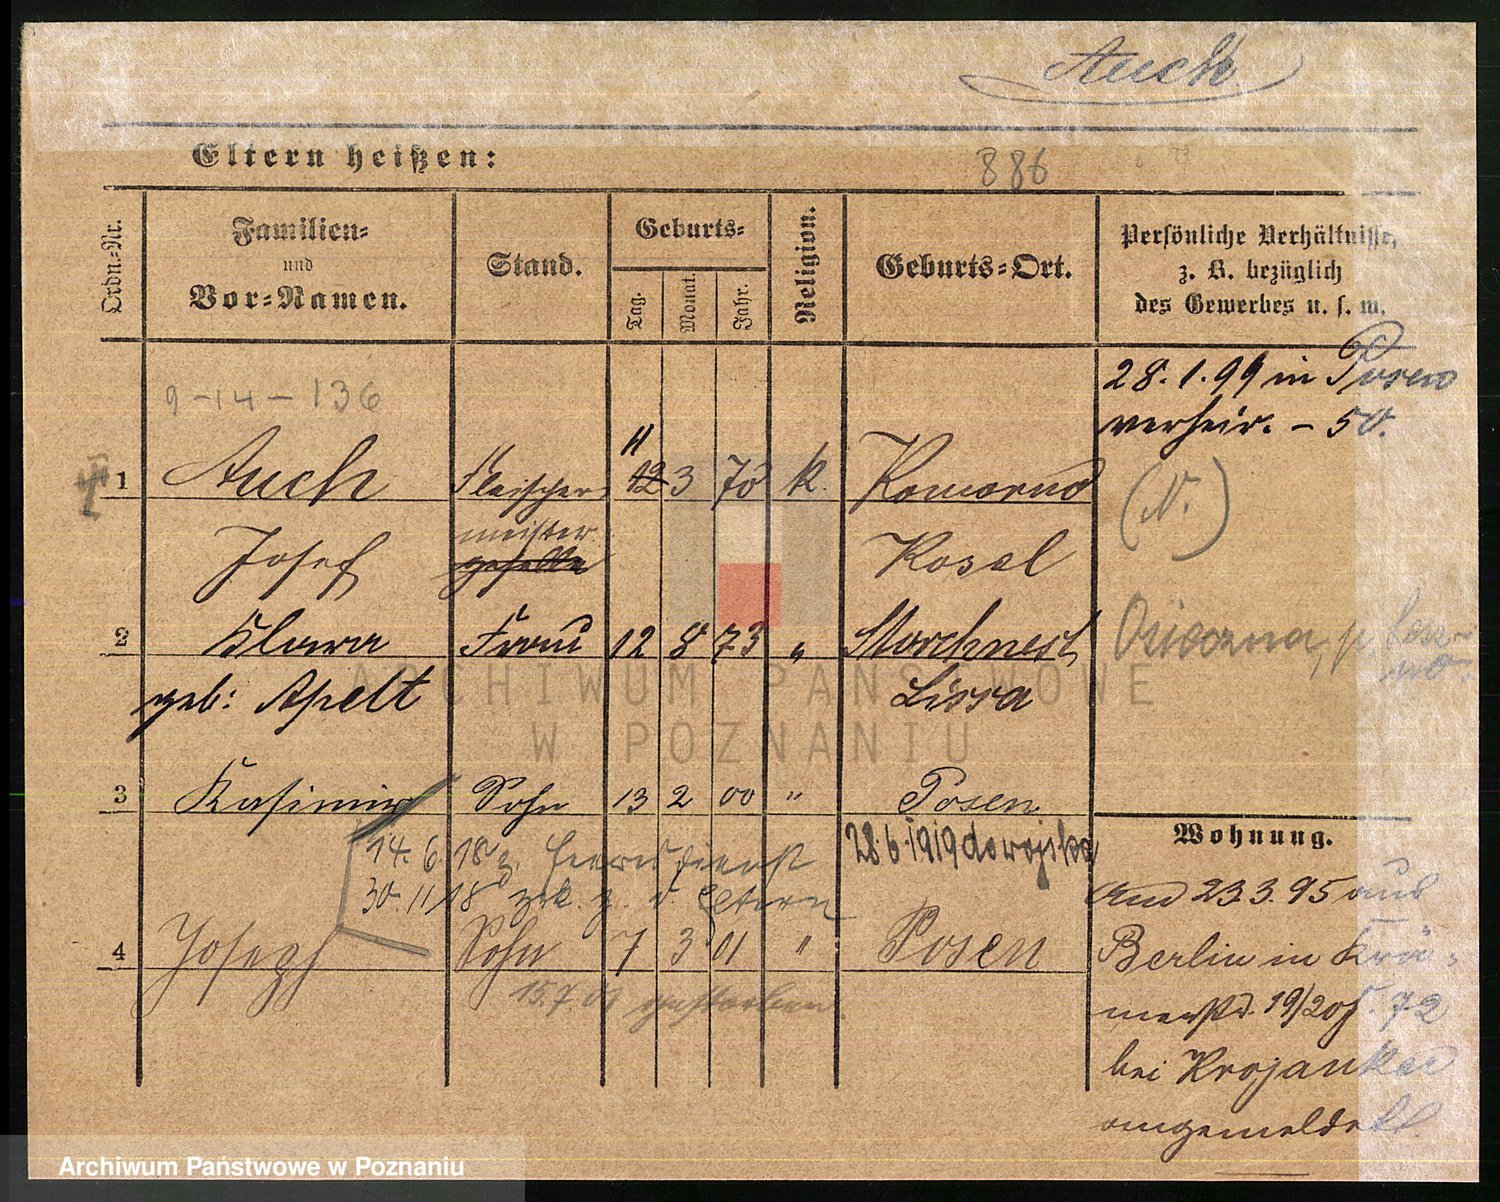 Auch
Eltern heißen:
886
Ordn.-Nr.
Familien-
und
Vor-Namen.
Stand.
Geburts-
Tag.
Monat.
Jahr.
Religion.
Geburts-Ort.
Persönliche Verhältnisse,
z. B. bezüglich
des Gewerbes u. s. w.
9-14-136
28.1.99 in Posen
verheir. - 50.
11
1 Auch Fleischer 12 3 70 k. Komorno
(N.)
Josef meister geselle Kosel
2 Klara Frau 12 8 73 " Storchnest
Osieczna, p.
geb: Apelt Lissa
ARCHIWUM PAŃSTWOWE
W POZNANIU
3 Kasimir Sohn 13 2 00 " Posen
Wohnung.
14. 6. 18 z. Heeresdienst
28.6.1919 do wojska
30. 11 18 zrk. z. d. Eltern
4 Joseph Sohn 7 3 01 " Posen
15.7.01 gestorben.
23.3.95 aus
Berlin in Krä-
merstr. 19/20
bei Krojanker
angemeldet.
Archiwum Państwowe w Poznaniu